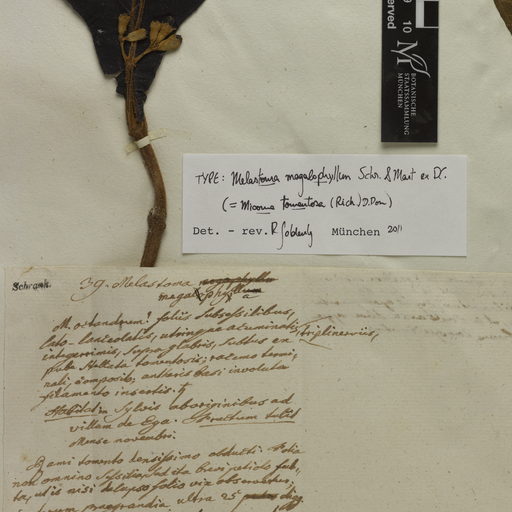 erved
10
BOTANISCHE
STAATSSAMMLUNG
MÜNCHEN
TYPE: Melastoma megalophyllum Schr. & Mart ex DC.
(= Miconia tomentosa (Rich.) D.Don)
Det. - rev. R. Goldenberg München 2011
Schrank.
39. Melastoma
foliis subsessilibus,
lato-lanceolatis, utrinque acuminatis, triplinerviis,
integerrimis, supra glabris, subtus ex
tomentosis; racemo termi,
nali, composito, antheris basi involuta
filamento insertis. ♄
Habitat in sylvis aboriginibus ad
villam de Ega. Fructum
mense novembri.
Rami tomento densissimo obducti. Folia
non omnino sessilia, sed ita brevi petiolo ful,
ta, ut is nisi delapso folio vix observetur,
praegrandia ultra 25